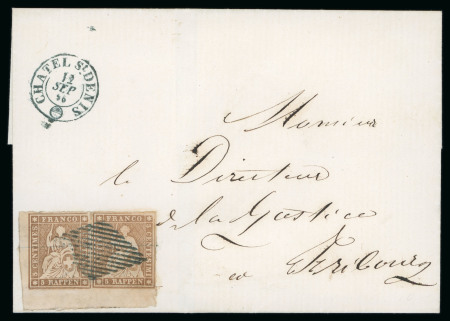 CHATEL St DENIS
12
SEP
56
Monsieur
le Directeur
de la Justice
à Fribourg
FRANCO FRANCO
5 RAPPEN 5 RAPPEN